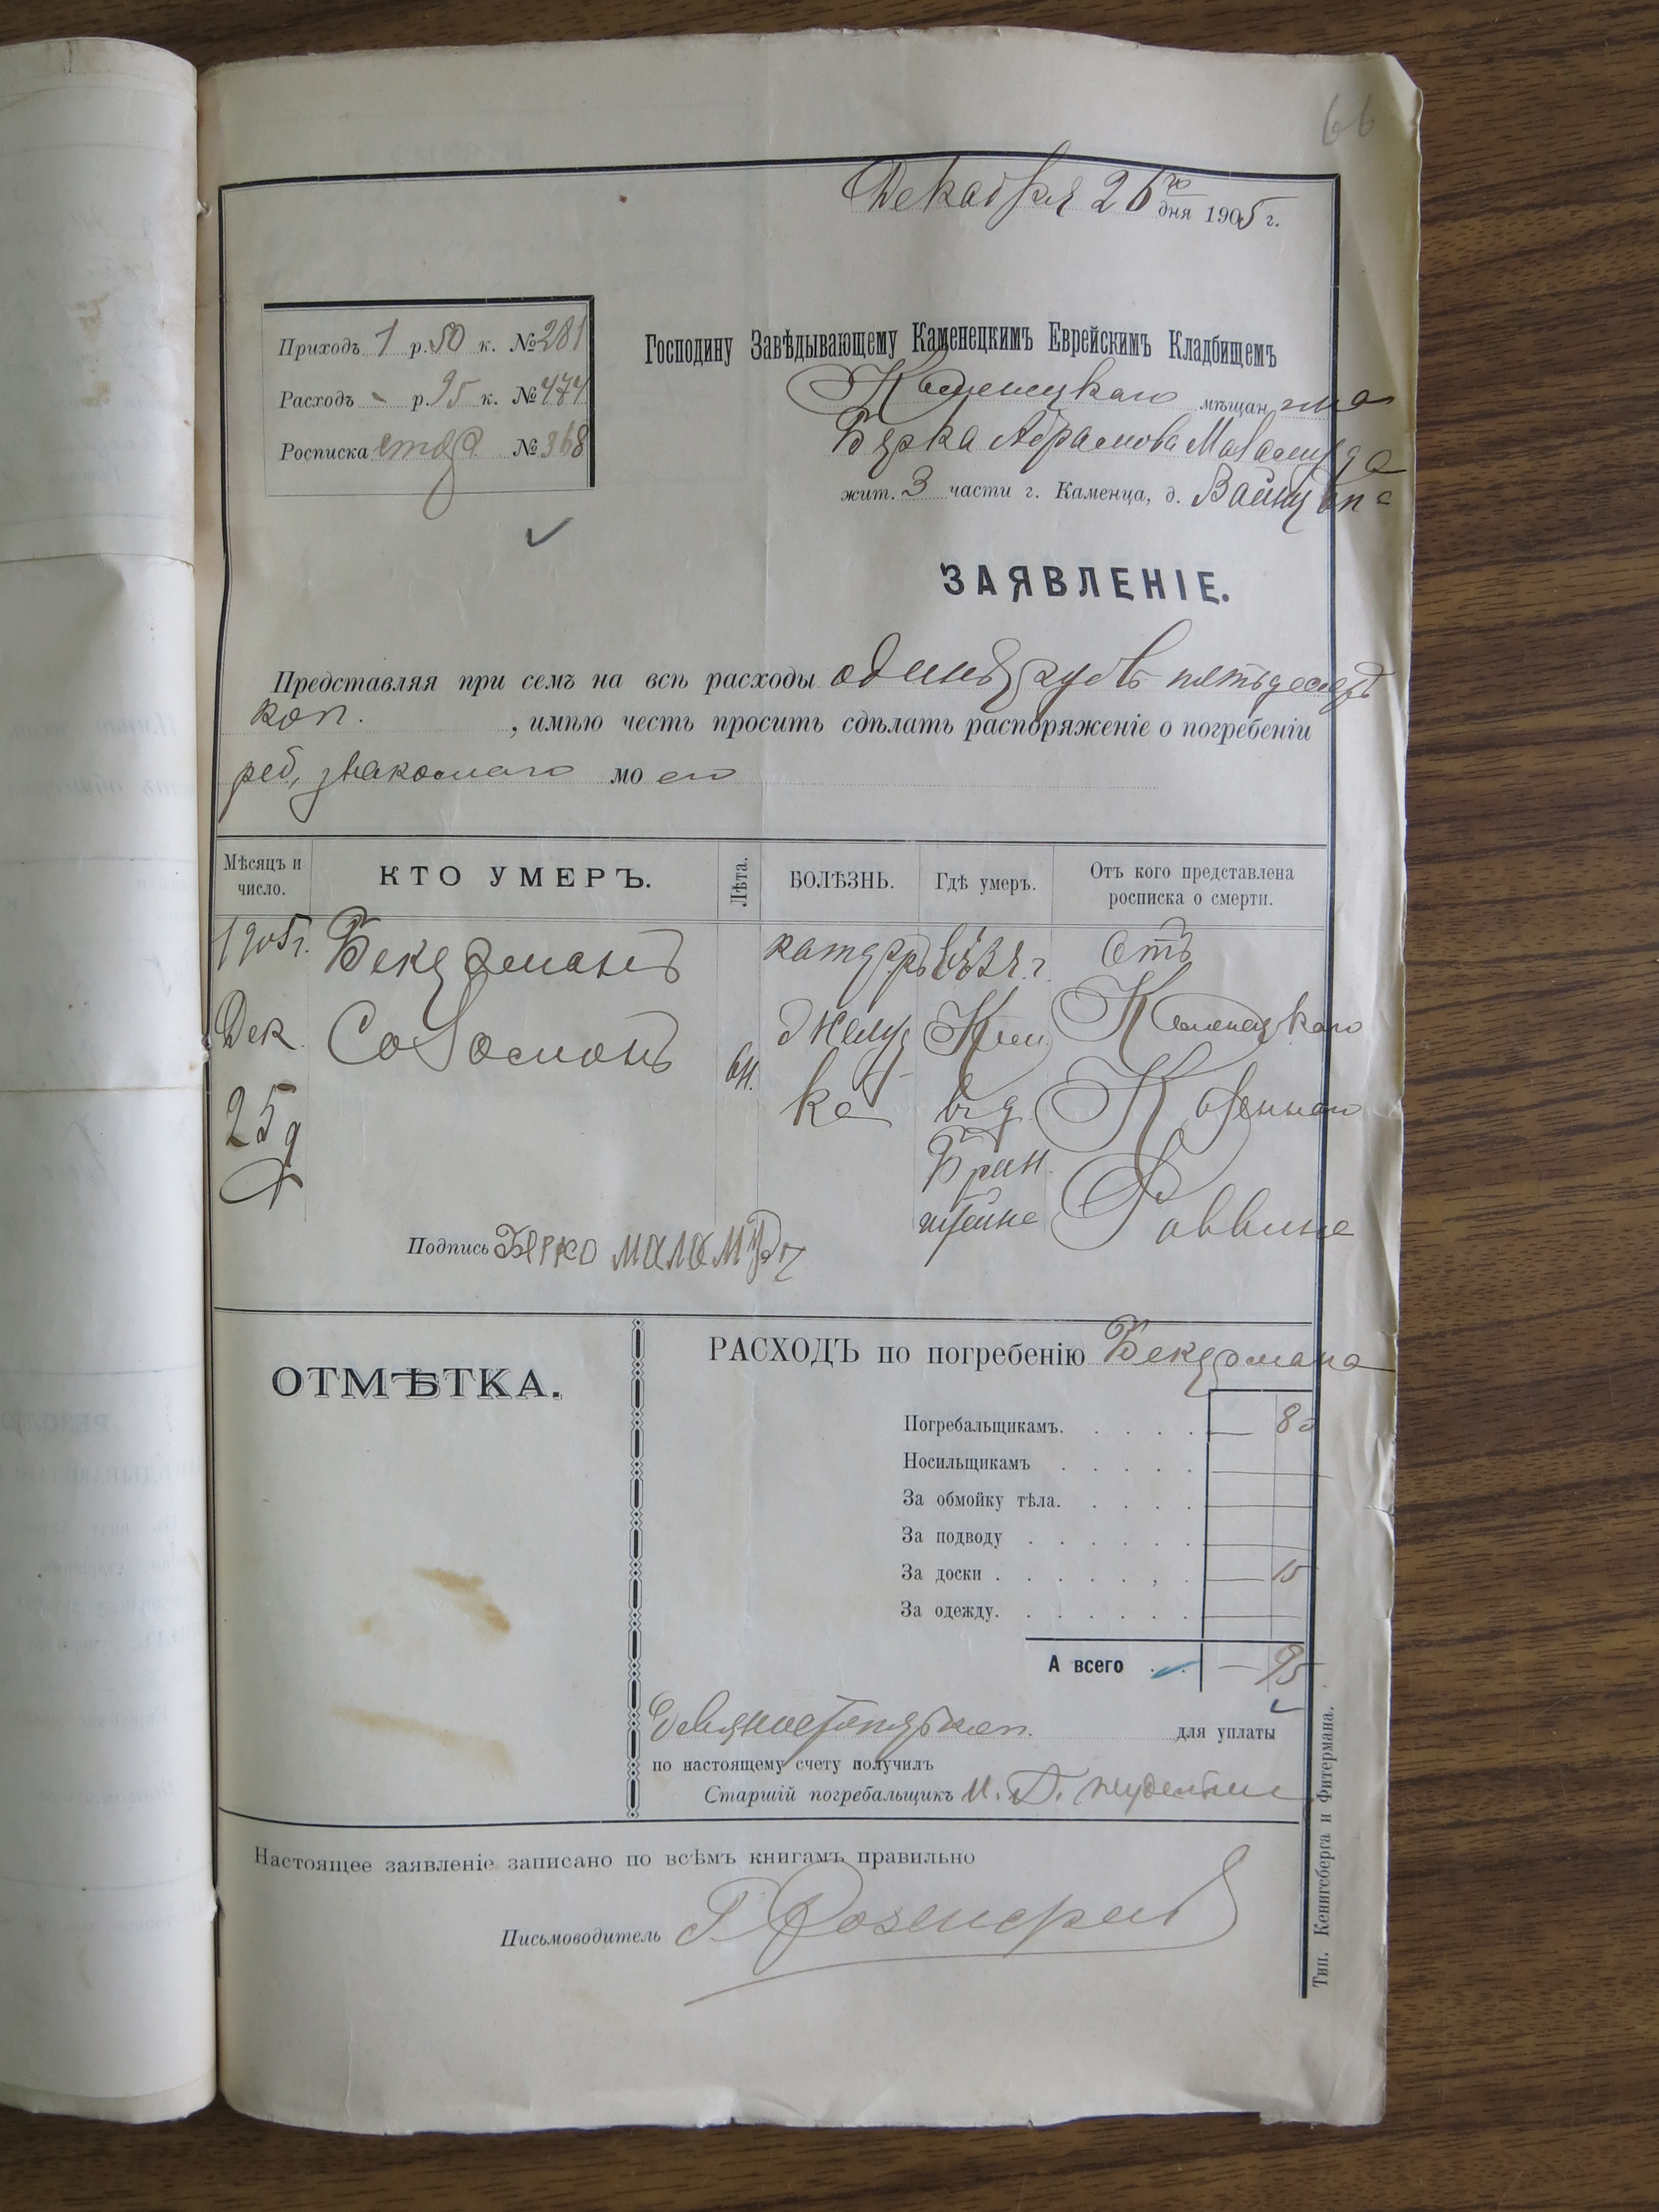 66
Декабря 26го дня 1905 г.
Приходъ 1 р. 50 к. № 281
Расходъ - р. 95 к. № 474
Росписка № 368
Господину Завѣдывающему Каменецкимъ Еврейскимъ Кладбищемъ
Каменецкаго мѣщанина
Берка Абрамова Маламуда
жит. 3 части г. Каменца, д.
ЗАЯВЛЕНІЕ.
Представляя при семъ на всѣ расходы одинъ рубль пятьдесятъ
коп. , имѣю честь просить сдѣлать распоряженіе о погребеніи
реб. знакомаго моего
Мѣсяцъ и число. КТО УМЕРЪ. Лѣта. БОЛѢЗНЬ. Гдѣ умеръ. Отъ кого представлена росписка о смерти.
1905г. Бекерманъ катарръ Отъ
Дек. Соломонъ 6м. желуд Кам. Каменецкаго
25 д ка въ д. Казеннаго
Бран
штейна Раввина
Подпись Берко маламуд
ОТМѢТКА.
РАСХОДЪ по погребенію Бекермана
Погребальщикамъ. — 80
Носильщикамъ
За обмойку тѣла.
За подводу
За доски — 15
За одежду.
А всего — 95
Девяностопять коп. для уплаты
по настоящему счету получилъ
Старшій погребальщикъ
Настоящее заявленіе записано по всѣмъ книгамъ правильно
Письмоводитель
Тип. Кенигсберга и Фитермана.